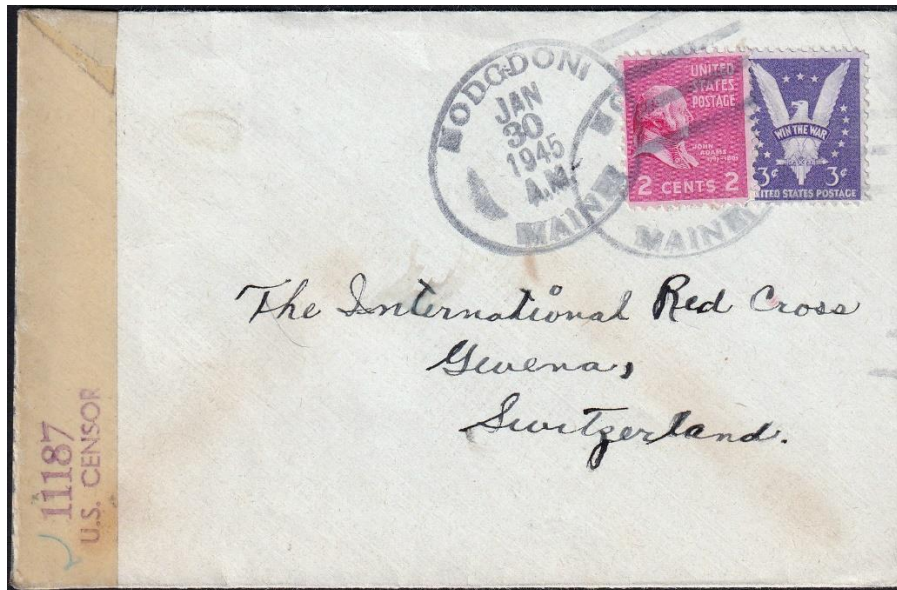 HODGDON
JAN
30
1945
A.M.
MAINE
MAINE
UNITED
STATES
POSTAGE
JOHN
ADAMS
2 CENTS 2
WIN THE WAR
3¢ 3¢
ITED STATES POSTAGE
The International Red Cross
Gevena,
Switzerland.
11187
U.S. CENSOR